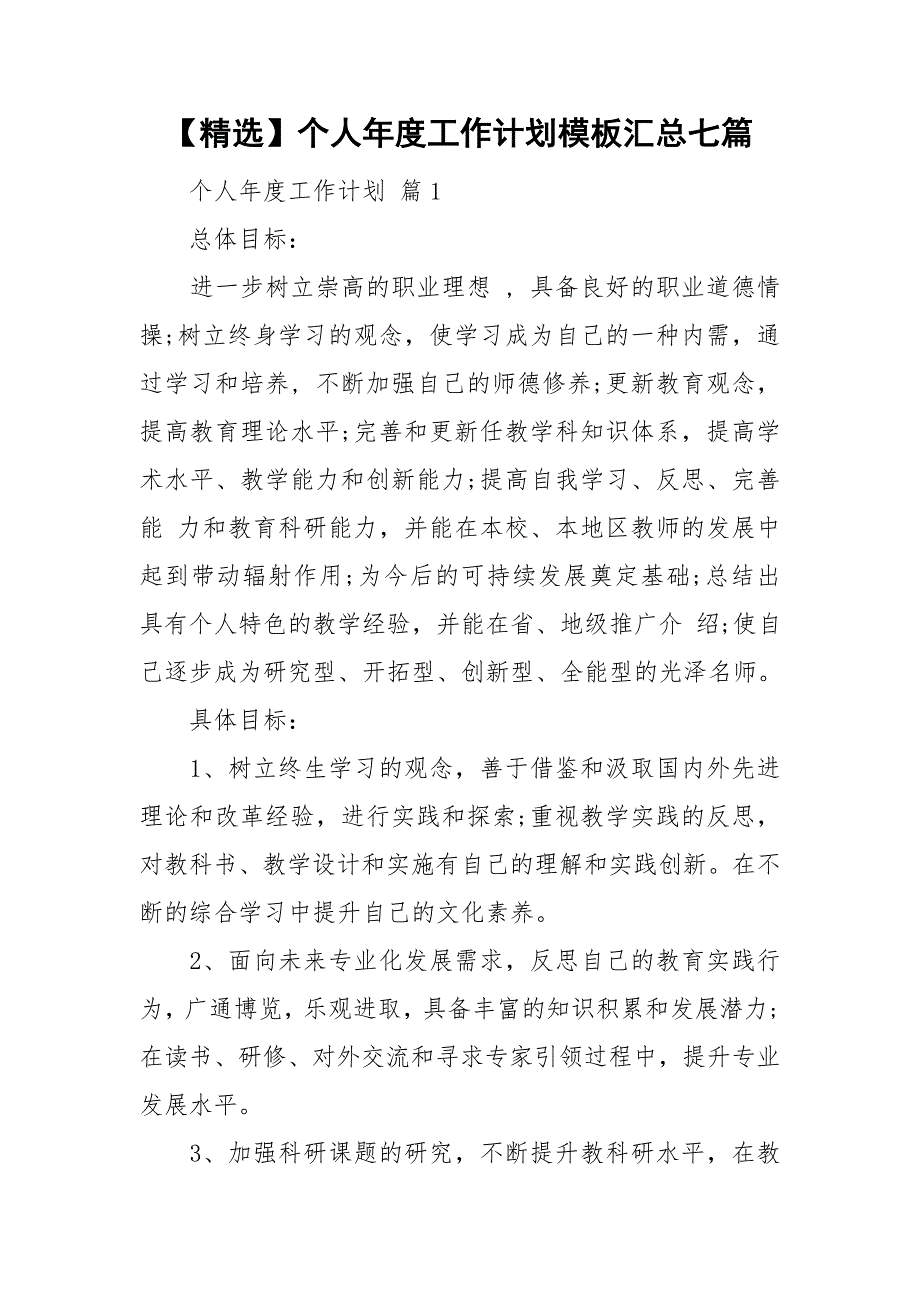 【精选】个人年度工作计划模板汇总七篇
个人年度工作计划 篇1
总体目标：
进一步树立崇高的职业理想 , 具备良好的职业道德情
操;树立终身学习的观念，使学习成为自己的一种内需，通
过学习和培养, 不断加强自己的师德修养;更新教育观念，
提高教育理论水平;完善和更新任教学科知识体系，提高学
术水平、教学能力和创新能力;提高自我学习、反思、完善
能 力和教育科研能力，并能在本校、本地区教师的发展中
起到带动辐射作用;为今后的可持续发展奠定基础;总结出
具有个人特色的教学经验，并能在省、地级推广介 绍;使自
己逐步成为研究型、开拓型、创新型、全能型的光泽名师。
具体目标：
1、树立终生学习的观念，善于借鉴和汲取国内外先进
理论和改革经验，进行实践和探索;重视教学实践的反思，
对教科书、教学设计和实施有自己的理解和实践创新。在不
断的综合学习中提升自己的文化素养。
2、面向未来专业化发展需求，反思自己的教育实践行
为，广通博览，乐观进取，具备丰富的知识积累和发展潜力;
在读书、研修、对外交流和寻求专家引领过程中，提升专业
发展水平。
3、加强科研课题的研究，不断提升教科研水平，在教